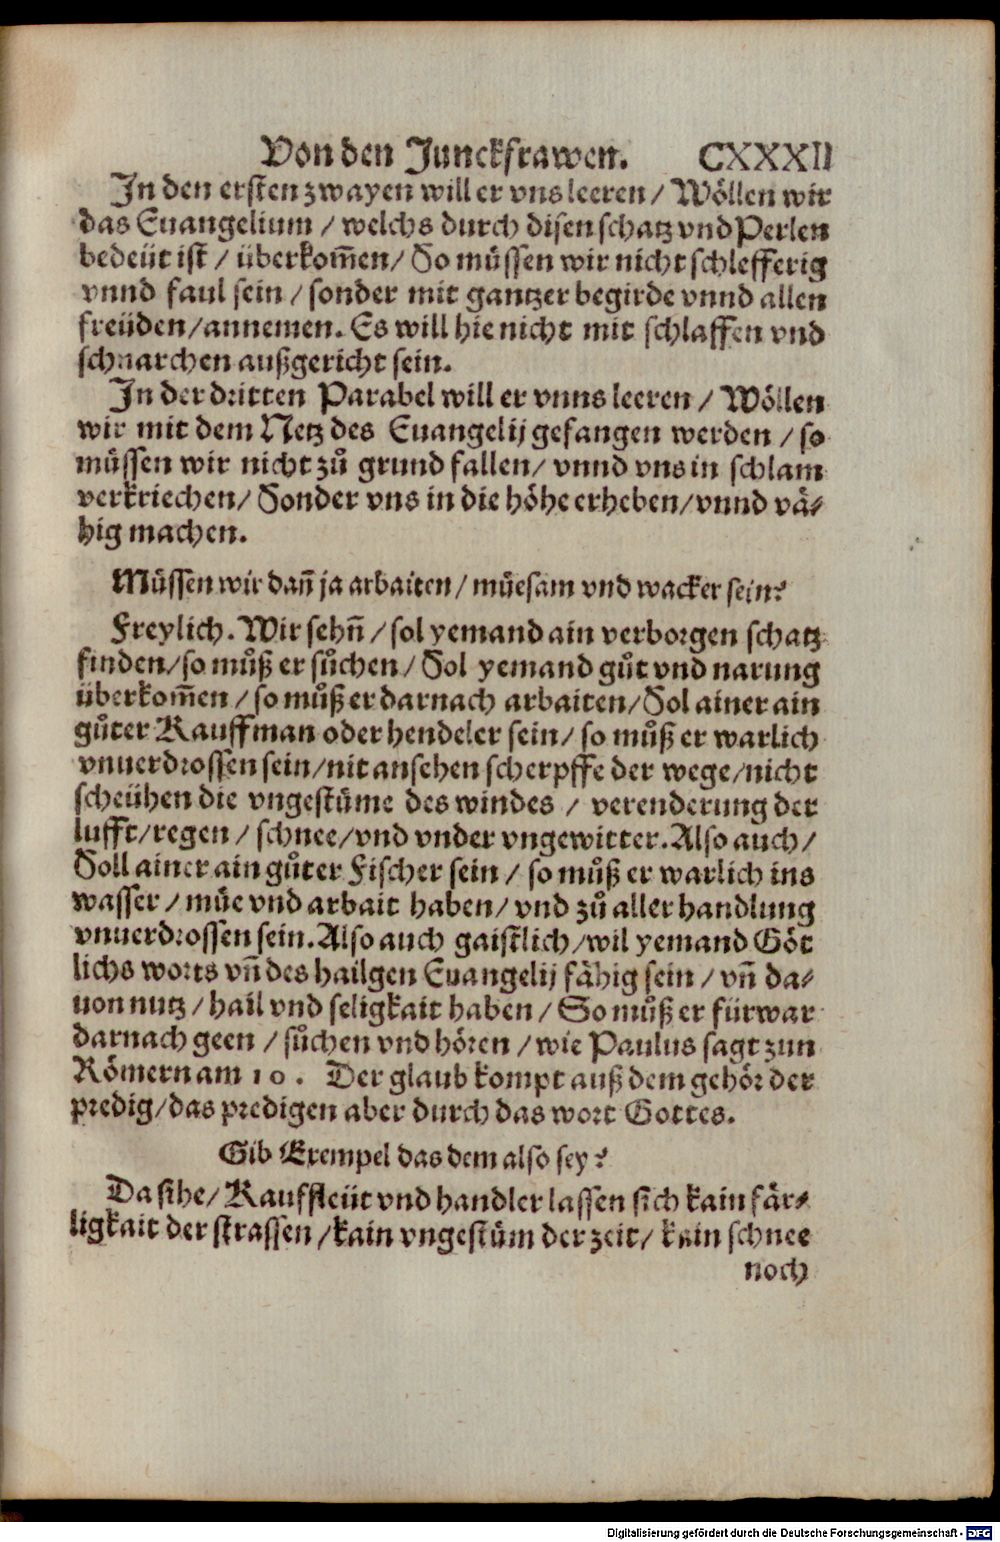 Von den Junckfrawen. CXXXII
In den ersten zwayen will er vns leeren / Wöllen wir
das Euangelium / welchs durch disen schatz vnd Perlen
bedeüt ist / überkom̃en / So müssen wir nicht schlefferig
vnnd faul sein / sonder mit gantzer begirde vnnd allen
freüden / annemen. Es will hie nicht mit schlaffen vnd
schnarchen außgericht sein.
In der dritten Parabel will er vnns leeren / Wöllen
wir mit dem Netz des Euangelij gefangen werden / so
müssen wir nicht zů grund fallen / vnnd vns in schlam
verkriechen / Sonder vns in die höhe erheben / vnnd vä-
hig machen.
Müssen wir dañ ja arbaiten / müesam vnd wacker sein?
Freylich. Wir sehñ / sol yemand ain verborgen schatz
finden / so můß er sůchen / Sol yemand gůt vnd narung
überkom̃en / so můß er darnach arbaiten / Sol ainer ain
gůter Kauffman oder hendeler sein / so můß er warlich
vnuerdrossen sein / nit ansehen scherpffe der wege / nicht
scheühen die vngestüme des windes / verenderung der
lufft / regen / schnee / vnd vnder vngewitter. Also auch /
Soll ainer ain gůter Fischer sein / so můß er warlich ins
wasser / müe vnd arbait haben / vnd zů aller handlung
vnuerdrossen sein. Also auch gaistlich / wil yemand Göt
lichs worts vñ des hailgen Euangelij fähig sein / vñ da-
uon nutz / hail vnd seligkait haben / So můß er fürwar
darnach geen / sůchen vnd hören / wie Paulus sagt zun
Römern am 10. Der glaub kompt auß dem gehör der
predig / das predigen aber durch das wort Gottes.
Gib Exempel das dem also sey?
Da sihe / Kauffleüt vnd handler lassen sich kain fär-
ligkait der strassen / kain vngestüm der zeit / kain schnee
noch
Digitalisierung gefördert durch die Deutsche Forschungsgemeinschaft - DFG